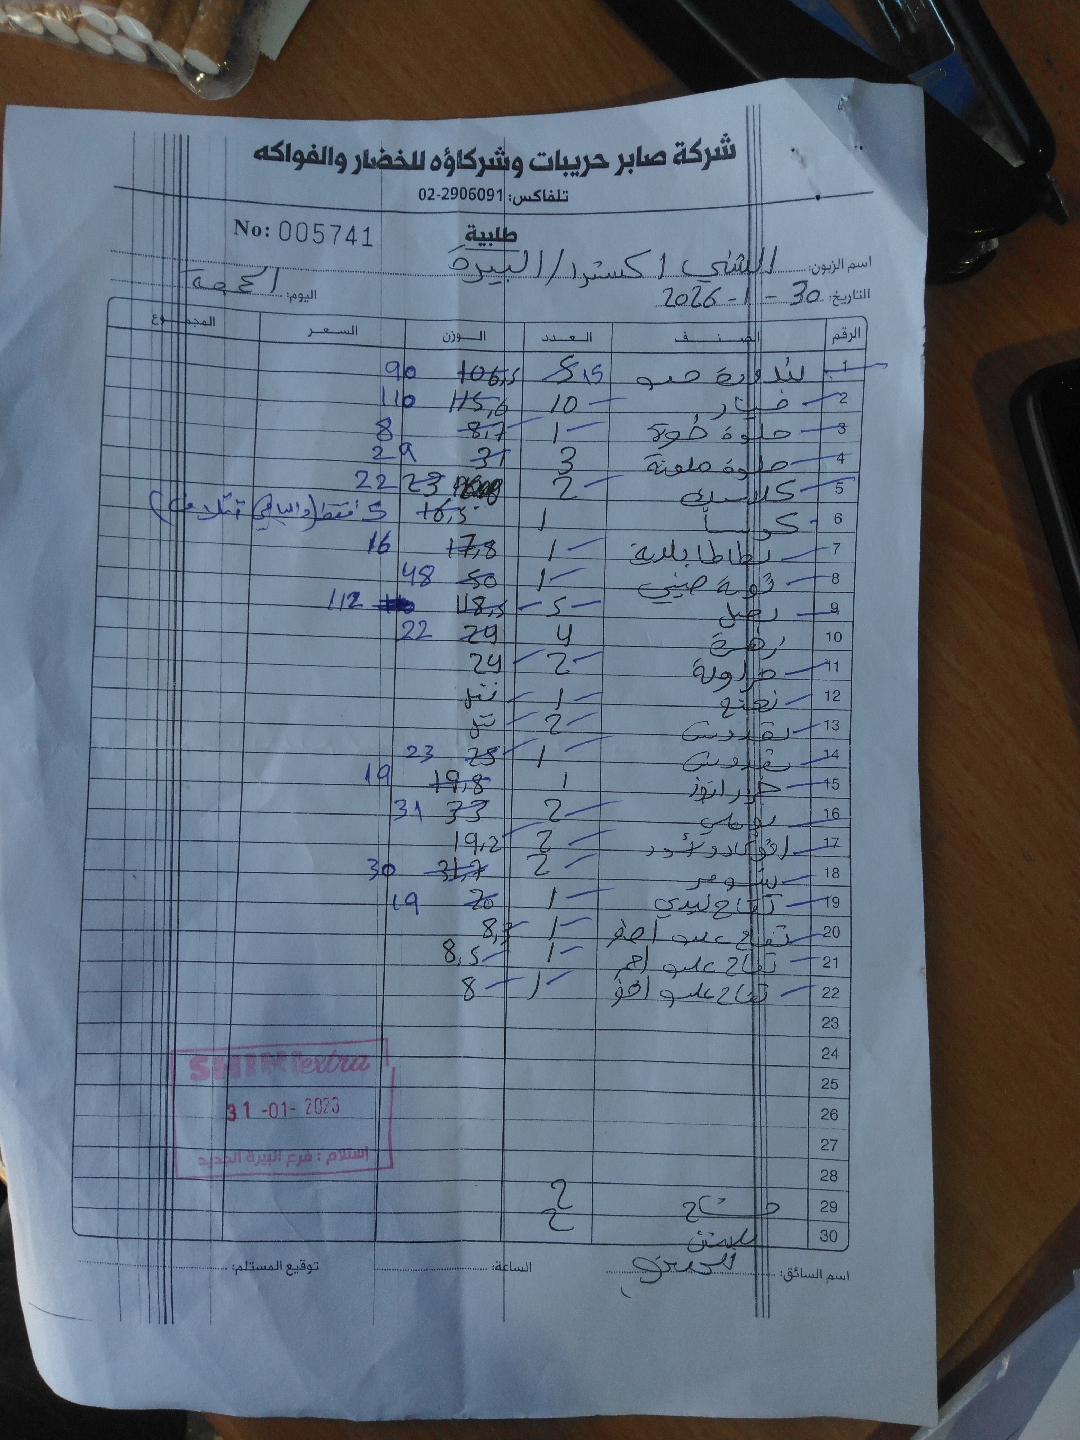 شركة صابر حريبات وشركاؤه للخضار والفواكه
تلفاكس: 02-2906091
No: 005741
طلبية
اسم الزبون: الشني اكسترا / البيرة
التاريخ: 30 - 1 - 2026 اليوم: الجمعة
الرقم الصنف العدد الوزن السعر المجموع
1 بندورة 15 106,5 90
2 خيار 10 115,6 110
3 حلوة 1 8,7 8
4 حلوة ملونة 3 31 29
5 كلاسيك 2 23 22
6 كوسا 1 16,5 5 فقط (والباقي
7 بطاطا 1 17,8 16
8 صيني 1 50 48
9 بصل 5 118,5 112
10 زهرة 4 24 22
11 2 24
12 نعنع 1
13 بقدونس 2
14 بقدونس 1 25 23
15 1 19,8 19
16 بوملي 2 33 31
17 افوكادو 2 19,2
18 شومر 2 31,7 30
19 تفاح ليدي 1 20 19
20 تفاح علب اصفر 1 8,3
21 تفاح علب احمر 1 8,5
22 تفاح علب اخضر 1 8
23
24
25
26
27
28
29 2
30 2
SHINI extra
استلام : فرع البيرة الجديد
اسم السائق: الساعة: توقيع المستلم: